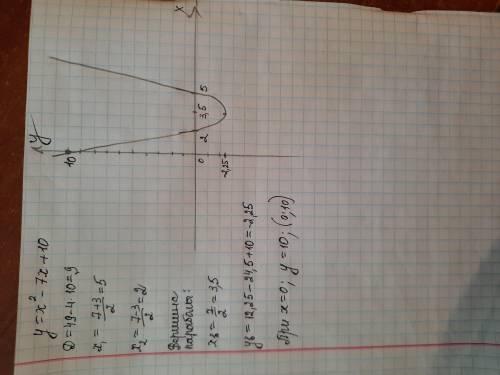 y = x² - 7x + 10
D = 49 - 4·10 = 9
x₁ = (7+3)/2 = 5
x₂ = (7-3)/2 = 2
Вершина
параболы:
xв = 7/2 = 3,5
yв = 12,25 - 24,5 + 10 = -2,25
При x=0; y = 10; (0;10)
y
10
x
5
3,5
2
0
-2,25